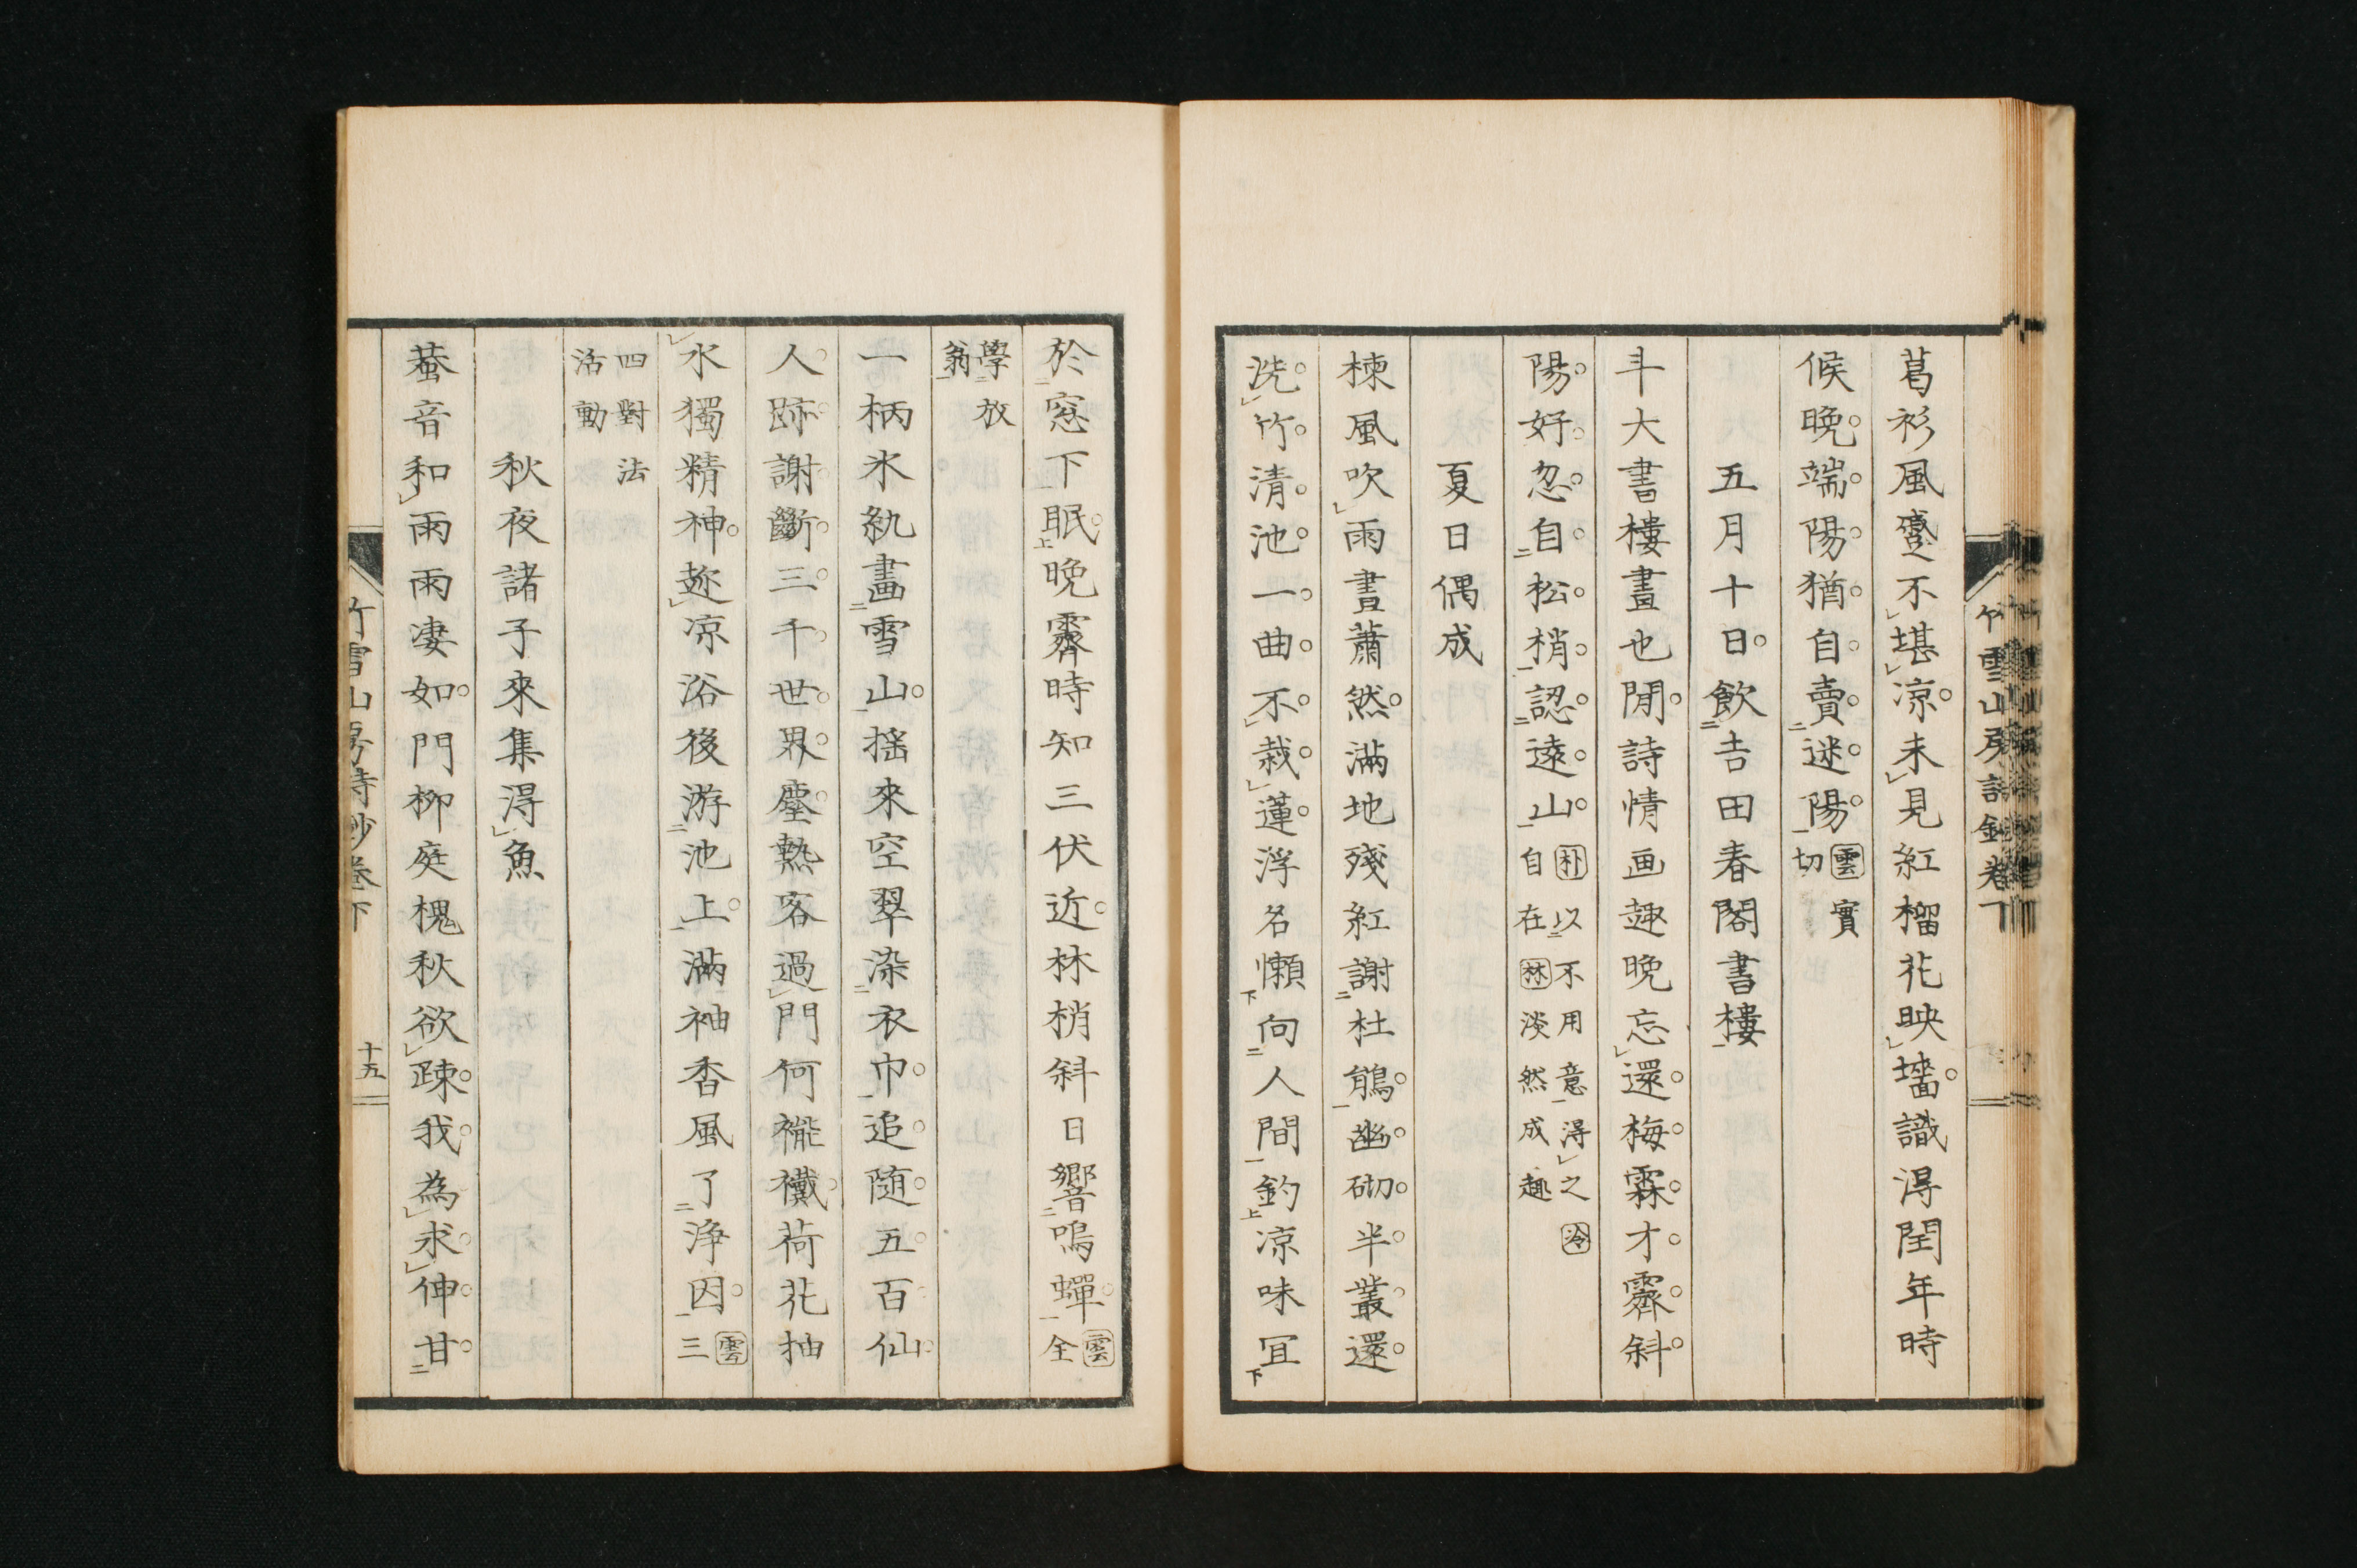 葛衫風蹙不堪凉未見紅榴花映墻識得閏年時
候晩端陽猶自賣迷陽雲實
切
五月十日飲吉田春閣書樓
斗大書樓畫也閒詩情画趣晩忘還梅霖才霽斜
陽好忽自松梢認遠山朴以不用意得之冷
自在林淡然成趣
夏日偶成
楝風吹雨晝蕭然滿地殘紅謝杜鵑幽砌半叢還
洗竹清池一曲不栽蓮浮名懶向人間釣凉味冝
於窓下眠晩霽時知三伏近林梢斜日響嗚蟬雲
全
學放
翁
一柄氷紈畫雪山搖來空翠染衣巾追随五百仙
人跡謝斷三千世界塵熱客過門何襶荷花抽
水獨精神趂凉浴後游池上滿袖香風了浄因雲
三
四對法
活動
秋夜諸子來集得魚
蛬音和雨雨凄如門柳庭槐秋欲疎我為求伸甘
竹雪山房詩鈔卷下
十五